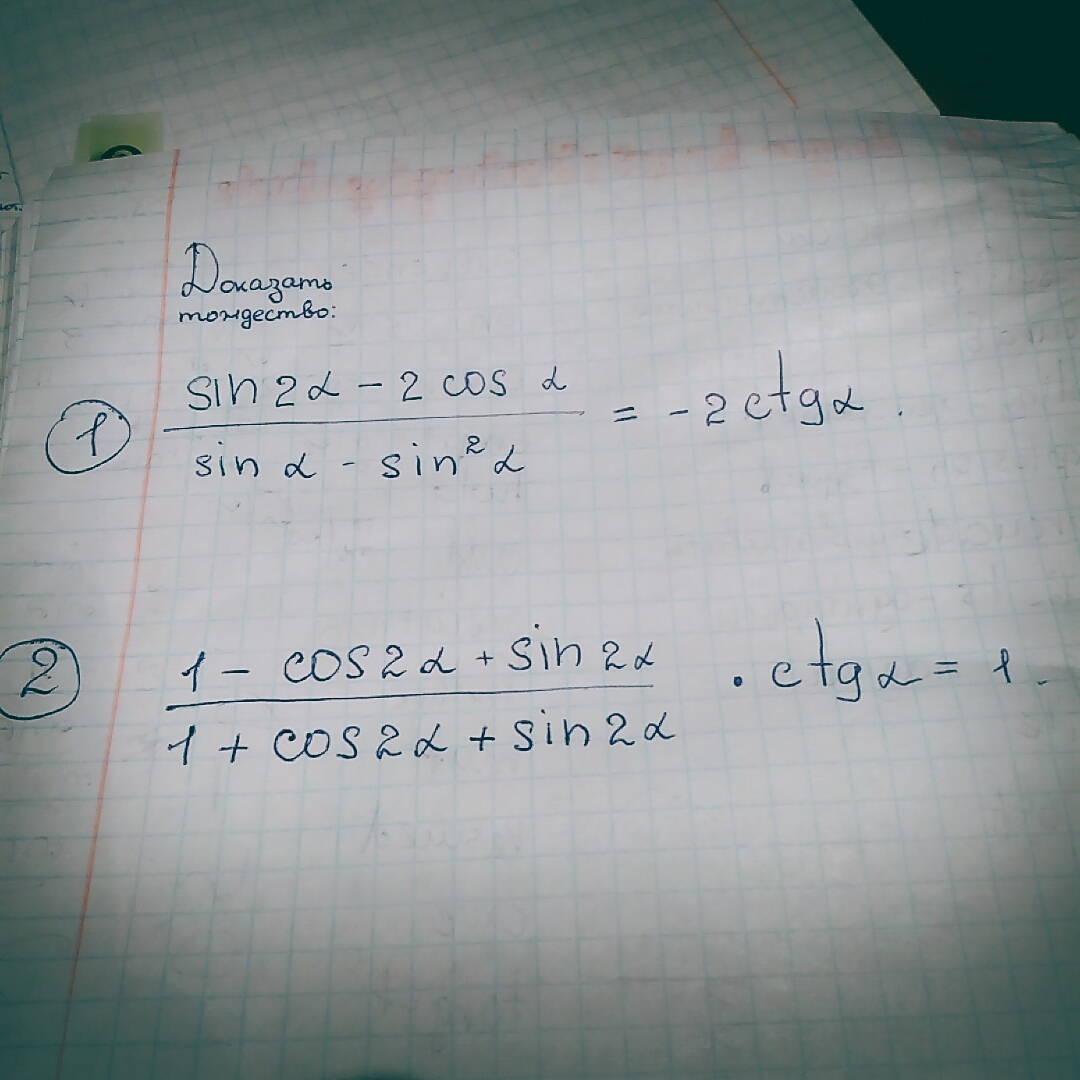 Доказать
тождество:
① sin 2α - 2 cos α / sin α - sin² α = -2 ctg α .
② 1 - cos 2α + sin 2α / 1 + cos 2α + sin 2α · ctg α = 1.